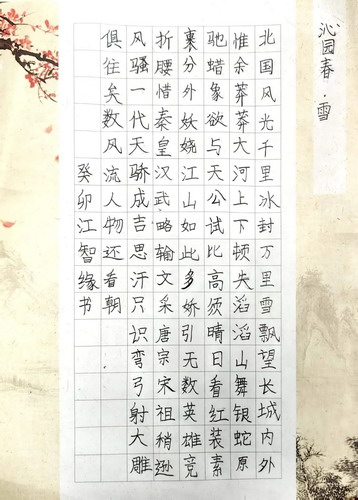 沁园春·雪
北国风光千里冰封万里雪飘望长城内外
惟余莽莽大河上下顿失滔滔山舞银蛇原
驰蜡象欲与天公试比高须晴日看红装素
裹分外妖娆江山如此多娇引无数英雄竞
折腰惜秦皇汉武略输文采唐宗宋祖稍逊
风骚一代天骄成吉思汗只识弯弓射大雕
俱往矣数风流人物还看朝
癸卯江智缘书